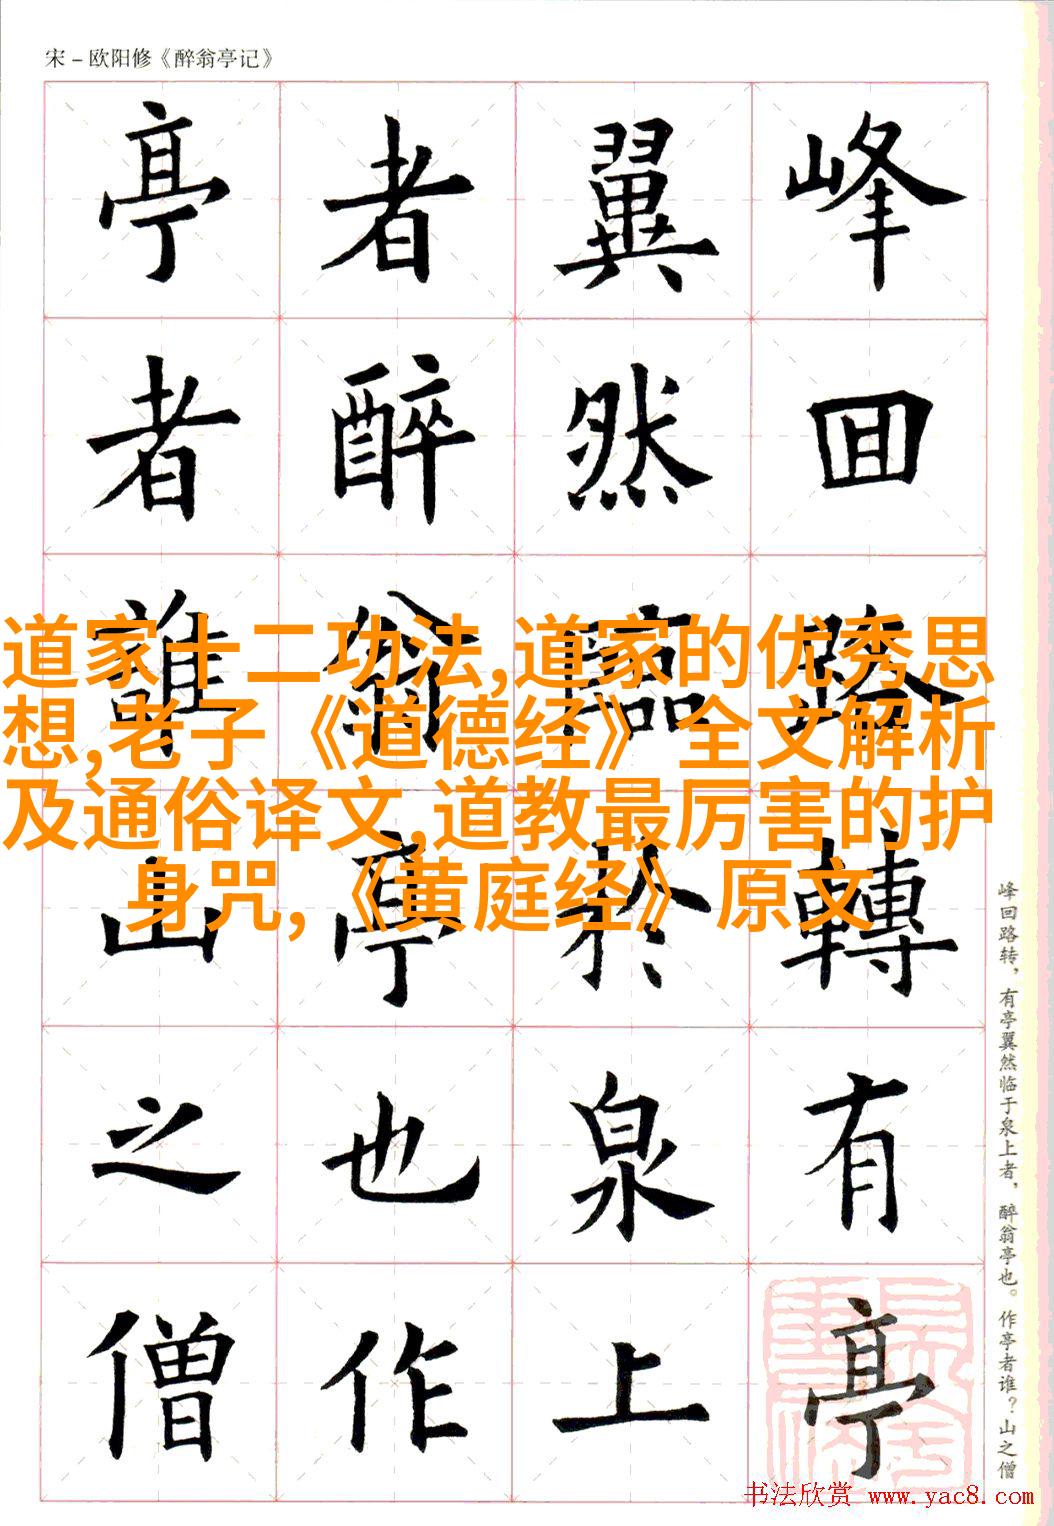 宋－欧阳修《醉翁亭记》
峰囬路轉有亭
翼然臨於泉上
者醉翁亭也作
亭者誰山之僧
道家十二功法,道家的优秀思
想,老子《道德经》全文解析
及通俗译文,道教最厉害的护
身咒,《黄庭经》原文
峰回路转，有亭翼然临于泉上者，醉翁亭也。作亭者谁？山之僧
书法欣赏 www.yac8.com